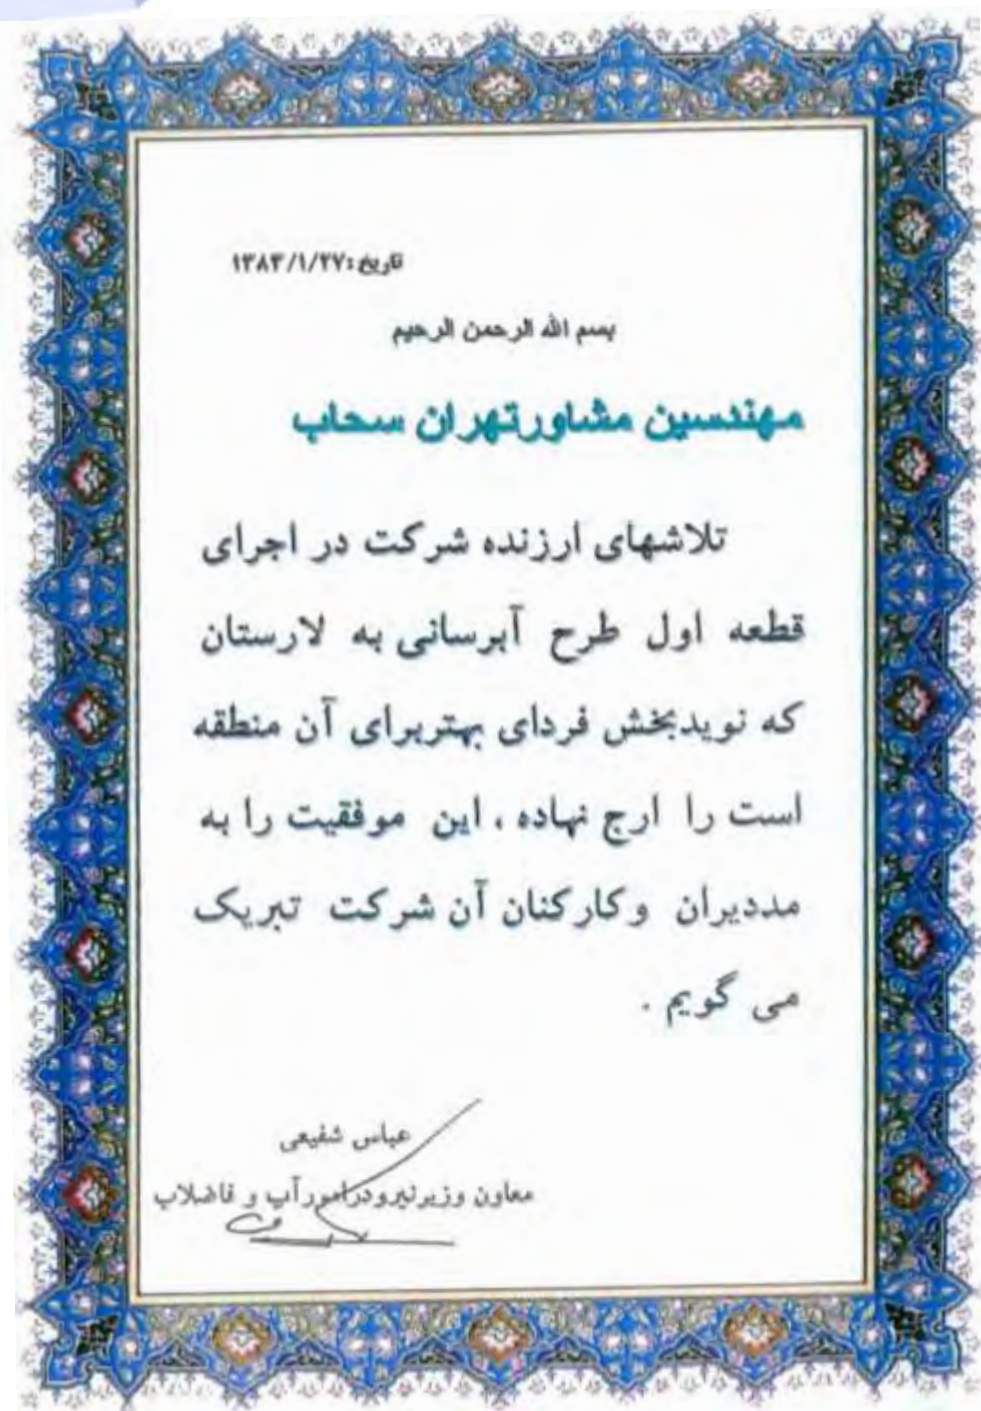 تاریخ :۱۳۸۳/۱/۲۷
بسم الله الرحمن الرحیم
مهندسین مشاورتهران سحاب
تلاشهای ارزنده شرکت در اجرای
قطعه اول طرح آبرسانی به لارستان
که نویدبخش فردای بهتربرای آن منطقه
است را ارج نهاده ، این موفقیت را به
مددیران وکارکنان آن شرکت تبریک
می گویم .
عباس شفیعی
معاون وزیرنیرودرامورآب و فاضلاب